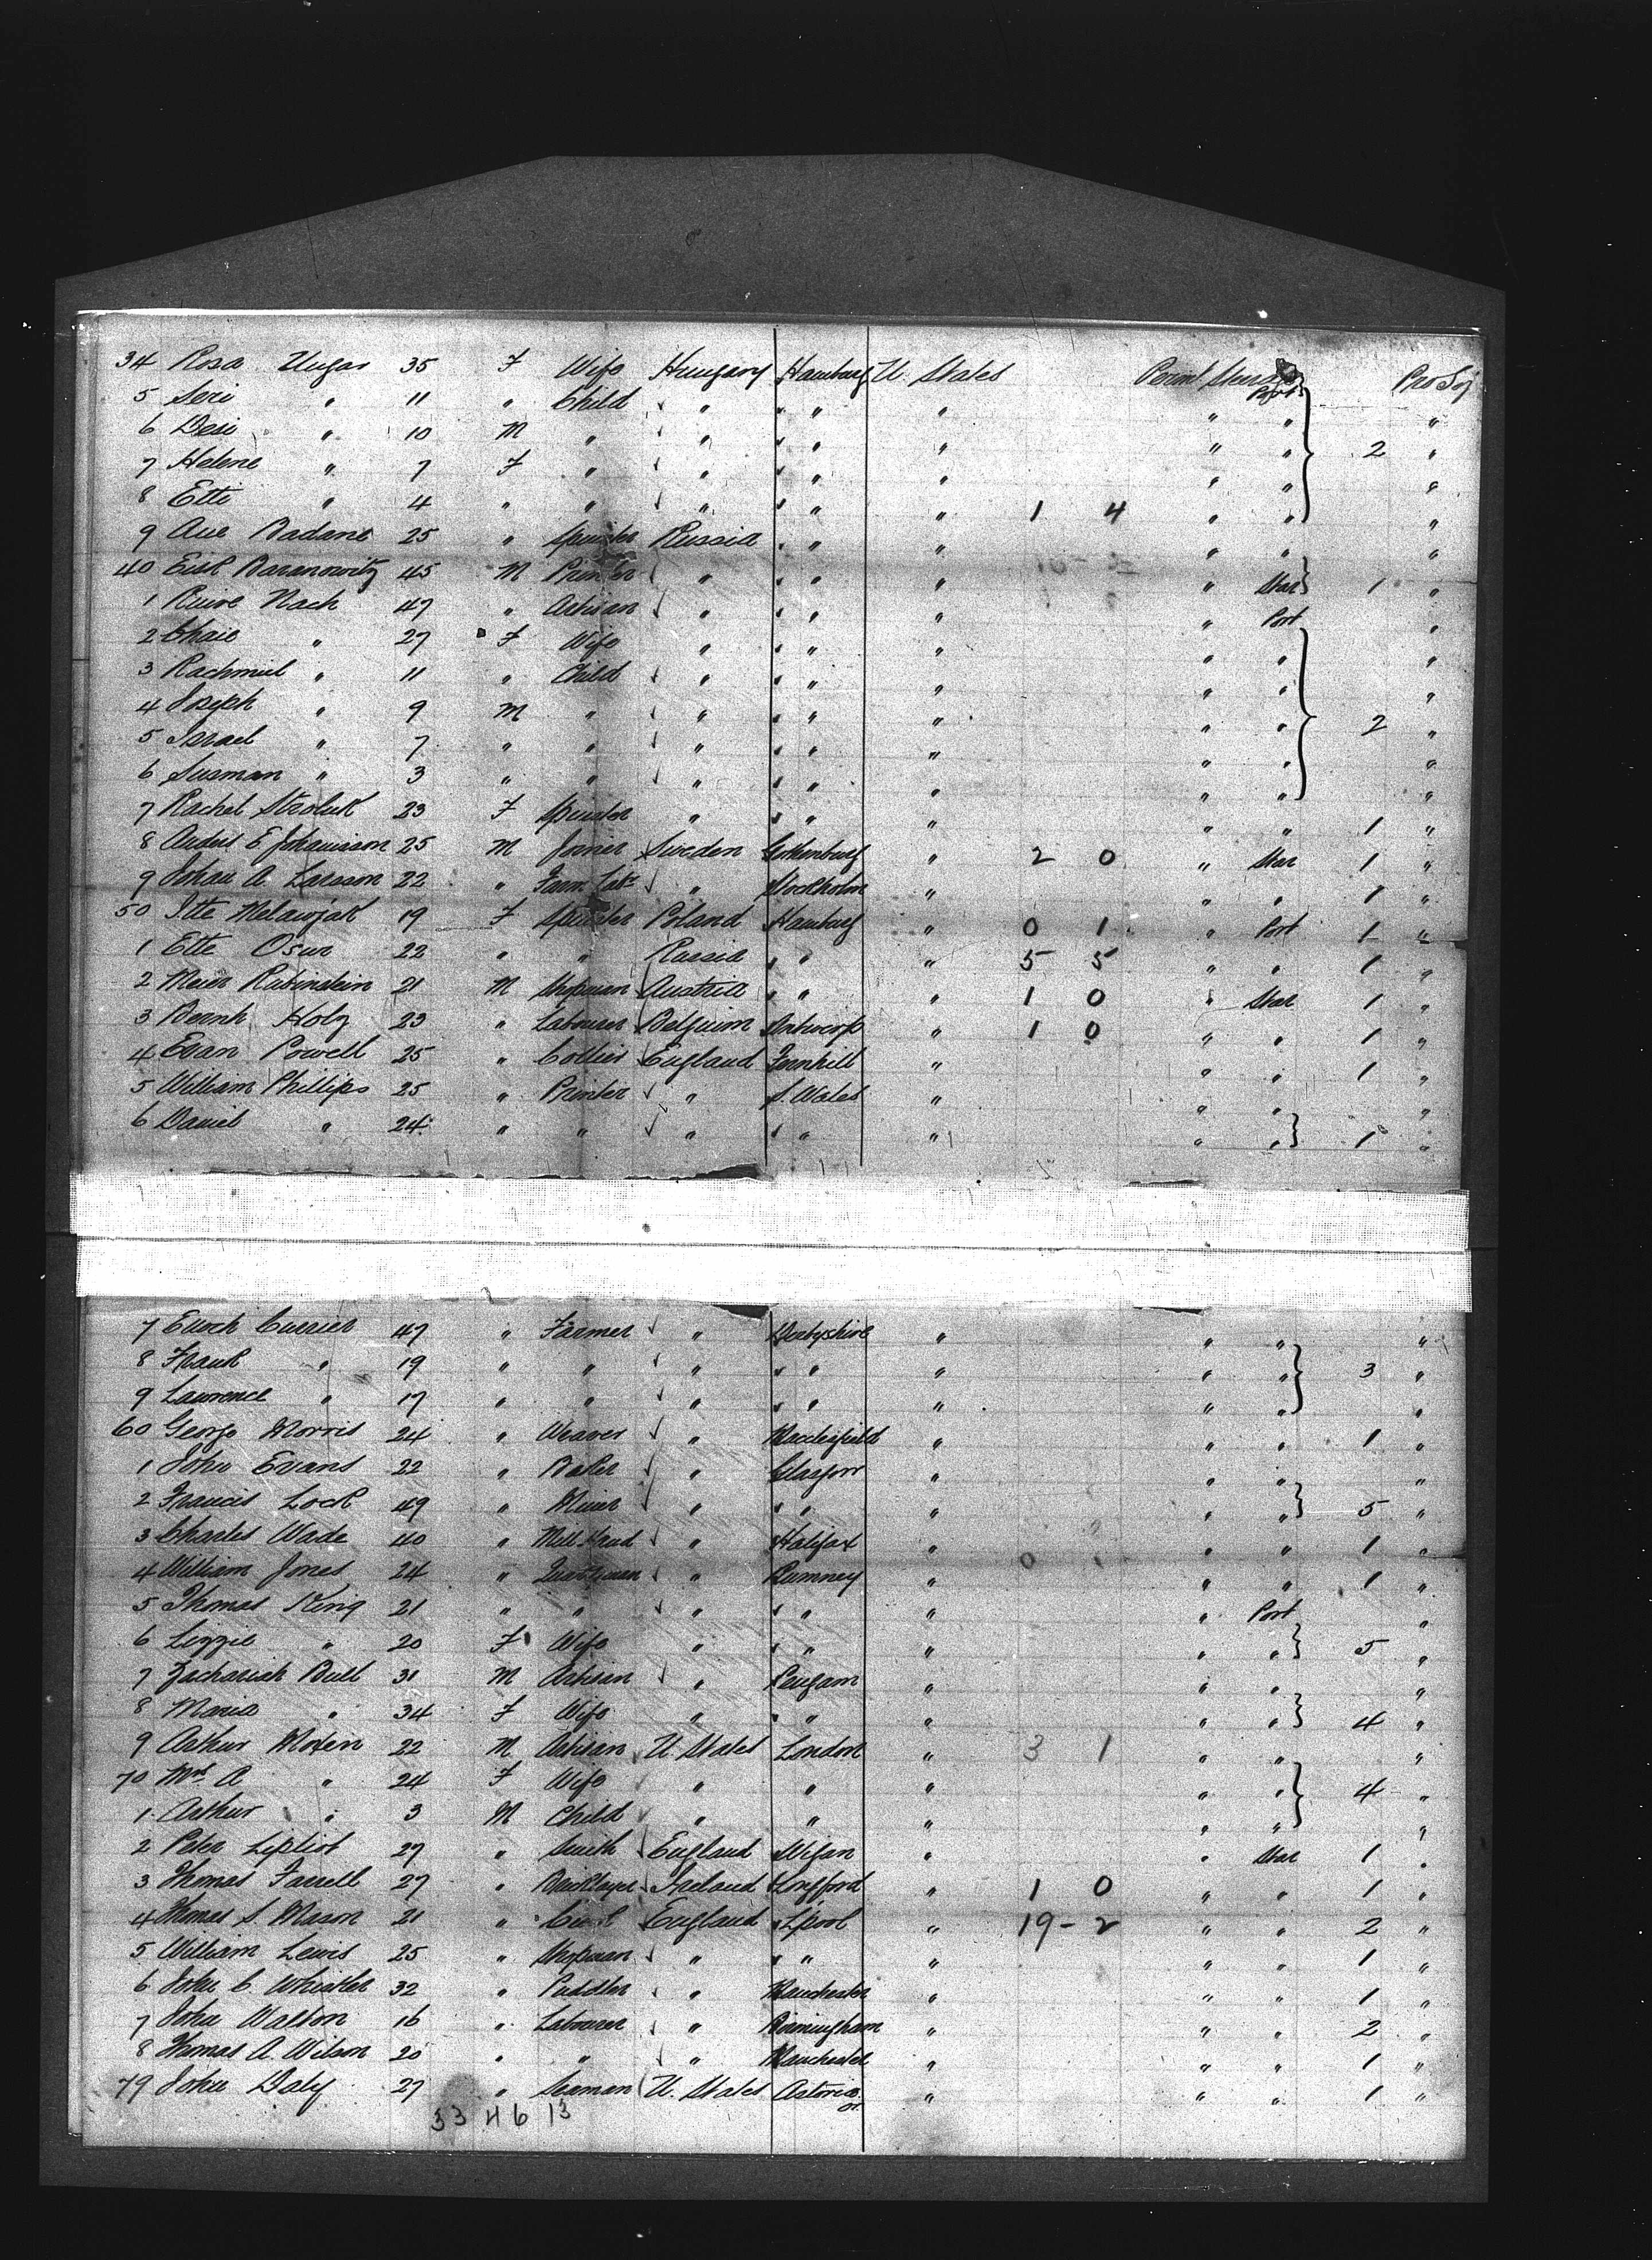 34 Rosa Ungar 35 F Wife Hungary Hamburg U. States Perm't Steerage Port Pro Soj
5 Seri " 11 " Child " " " " " "
6 Desi " 10 M " " " " " " 2 "
7 Helene " 7 F " " " " " " "
8 Etti " 4 " " " " " 1 4 " " "
9 Ave Badane 25 " Spinster Russia " " " " "
40 Eisk Baranowitz 45 M Printer " " " " Star 1 "
1 Ruive Nach 47 " Artisan " " " " Port "
2 Chaie " 27 F Wife " " " " " "
3 Rachmiel " 11 " Child " " " " " "
4 Joseph " 9 M " " " " " " 2 "
5 Israel " 7 " " " " " " " "
6 Susman " 3 " " " " " " " "
7 Rachel Stroluk 23 F Spinster " " " " " 1 "
8 Anders E Johannsson 25 M Joiner Sweden Gothenburg " 2 0 " Star 1 "
9 Johan A. Larsson 22 " Farm Labr " Stockholm " " " 1 "
50 Itte Melawjak 19 F Spinster Poland Hamburg " 0 1 " Port 1 "
1 Ette Osur 22 " " Russia " " 5 5 " " 1 "
2 Meier Rubinstein 21 M Shopman Austria " " 1 0 " Star 1 "
3 Bernh Holz 23 " Labourer Belguim Antwerp " 1 0 " " 1 "
4 Evan Powell 25 " Collier England Fernhill " " " 1 "
5 William Phillips 25 " Printer " S. Wales " " " "
6 Daniel " 24 " " " " " " " 1 "
7 Enoch Currier 47 " Farmer " Derbyshire " " " "
8 Frank " 19 " " " " " " " 3 "
9 Lawrence " 17 " " " " " " " "
60 George Morris 24 " Weaver " Macclesfield " " " 1 "
1 John Evans 22 " Baker " Glasgow " " " "
2 Francis Lock 49 " Miner " " " " " 5 "
3 Charles Wade 40 " Mill Hand " Halifax " " " 1 "
4 William Jones 24 " " Rumney " " " 1 "
5 Thomas King 21 " " " " " " Port "
6 Lizzie " 20 F Wife " " " " " 5 "
7 Zachariah Bull 31 M Artisan " Pengam " " " "
8 Maria " 34 F Wife " " " " " 4 "
9 Arthur Moxen 22 M Artisan U. States London " 3 1 " " "
70 Mrs A " 24 F Wife " " " " " 4 "
1 Arthur " 3 M Child " " " " " "
2 Peter Liptrot 27 " Smith England Wigan " " Star 1 "
3 Thomas Farrell 27 " Bricklayer Ireland Longford " 1 0 " " 1 "
4 Thomas S. Mason 21 " England L'pool " 19-2 " " 2 "
5 William Lewis 25 " Shopman " " " " " 1 "
6 John C. Whistler 32 " Puddler " Manchester " " " 1 "
7 John Walton 16 " Labourer " Birmingham " " " 2 "
8 Thomas A. Wilson 20 " " " Manchester " " " 1 "
79 John Daly 27 " Seaman U. States Astoria or. " " " 1 "
33 46 13